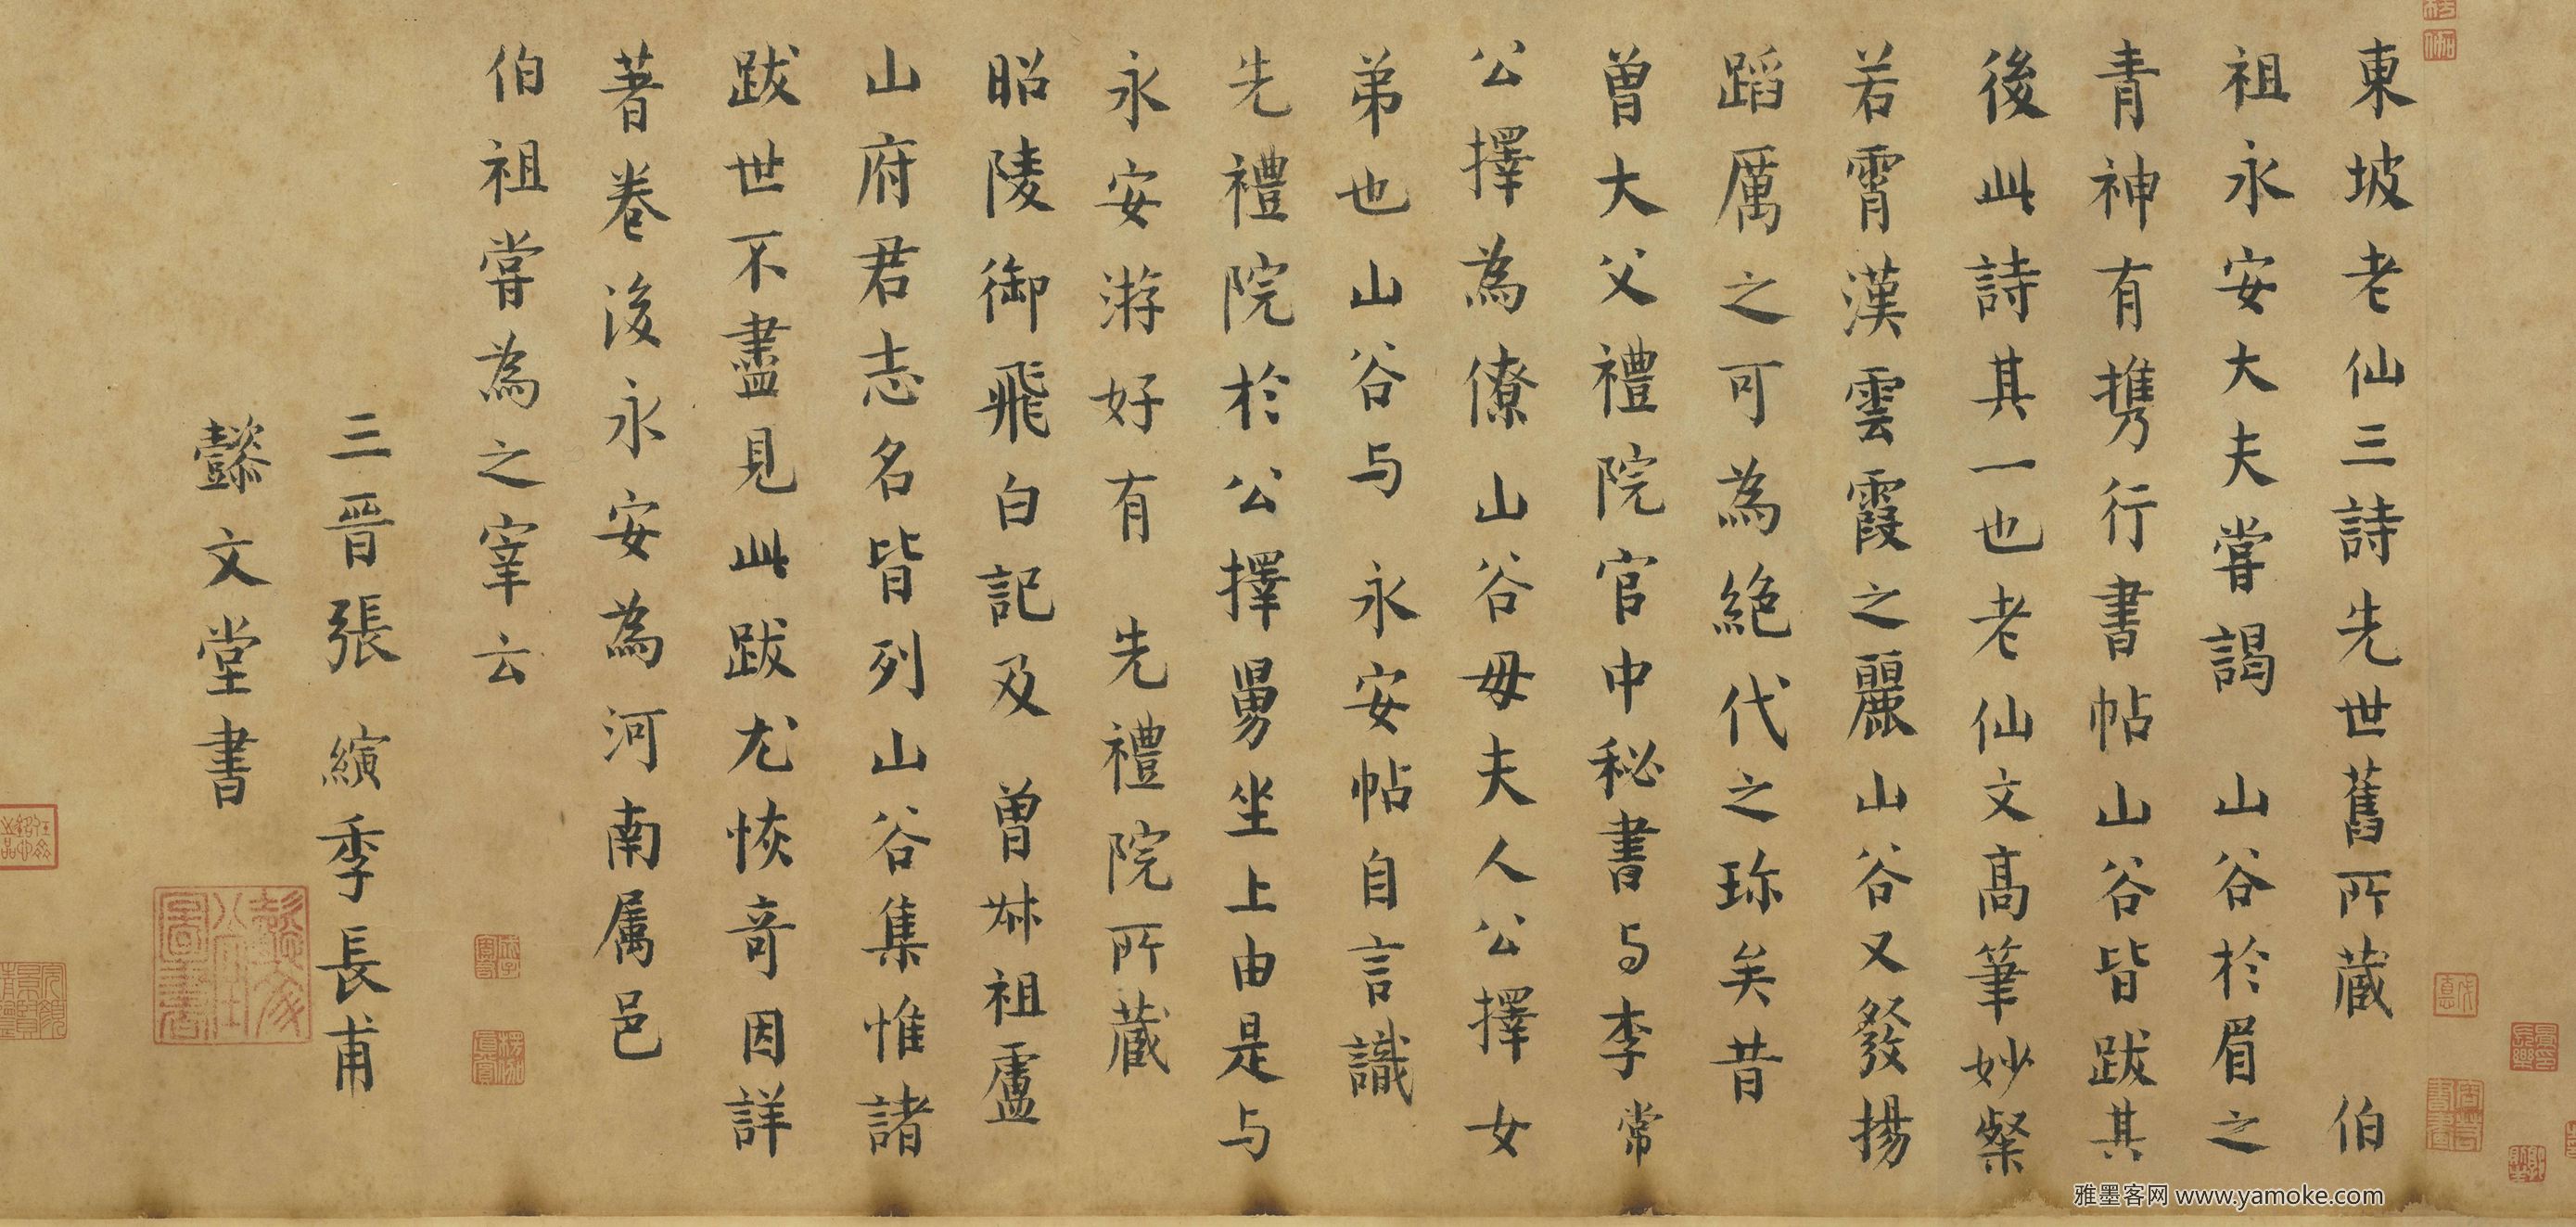 東坡老仙三詩先世舊所藏 伯
祖永安大夫嘗謁 山谷於眉之
青神有携行書帖山谷皆跋其
後此詩其一也老仙文高筆妙粲
若霄漢雲霞之麗山谷又發揚
蹈厲之可為絶代之珎矣昔
曾大父禮院官中秘書与李常
公擇為僚山谷母夫人公擇女
弟也山谷与 永安帖自言識
先禮院於公擇舅坐上由是与
永安游好有 先禮院所藏
昭陵御飛白記及 曾叔祖盧
山府君志名皆列山谷集惟諸
跋世不盡見此跋尤恢奇因詳
著卷後永安為河南属邑
伯祖嘗為之宰云
三晉張 縯季長甫
懿文堂書
雅墨客网 www.yamoke.com